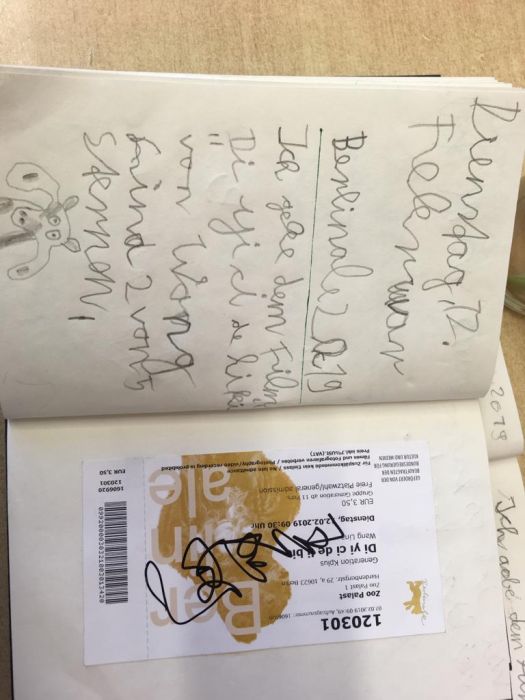 Dienstag, 12.
Februar
Berlinale 2019
Ich gebe dem Film
von Wang
Sternen,
2019
Ich gebe dem
120301
07.02.2019 09:49, Auftragsnummer: 1608920
Zoo Palast
Zoo Palast 1
Hardenbergstr. 29 a, 10623 Berlin
Generation Kplus
Di yi ci de li bie
Wang Lina
Dienstag, 12.02.2019 09:30 Uhr
EUR 3,50
Gruppe Generation ab 11 Pers.
Freie Platzwahl/general admission
Für Zuspätkommende kein Einlass / No late admittance
Filmen und Fotografieren verboten / Photography/video recording is prohibited
Preis inkl. 7% USt. (VAT)
GEFÖRDERT VON DER
BEAUFTRAGTEN DER
BUNDESREGIERUNG FÜR
KULTUR UND MEDIEN
Berlinale
1608920
120301
EUR 3,50